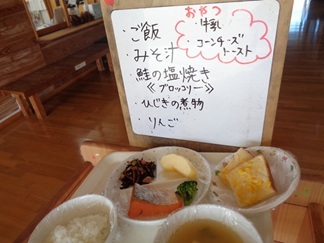 ・ご飯
・みそ汁
・鮭の塩焼き
≪ブロッコリー≫
・ひじきの煮物
・りんご
おやつ
・牛乳
・コーンチーズ
トースト